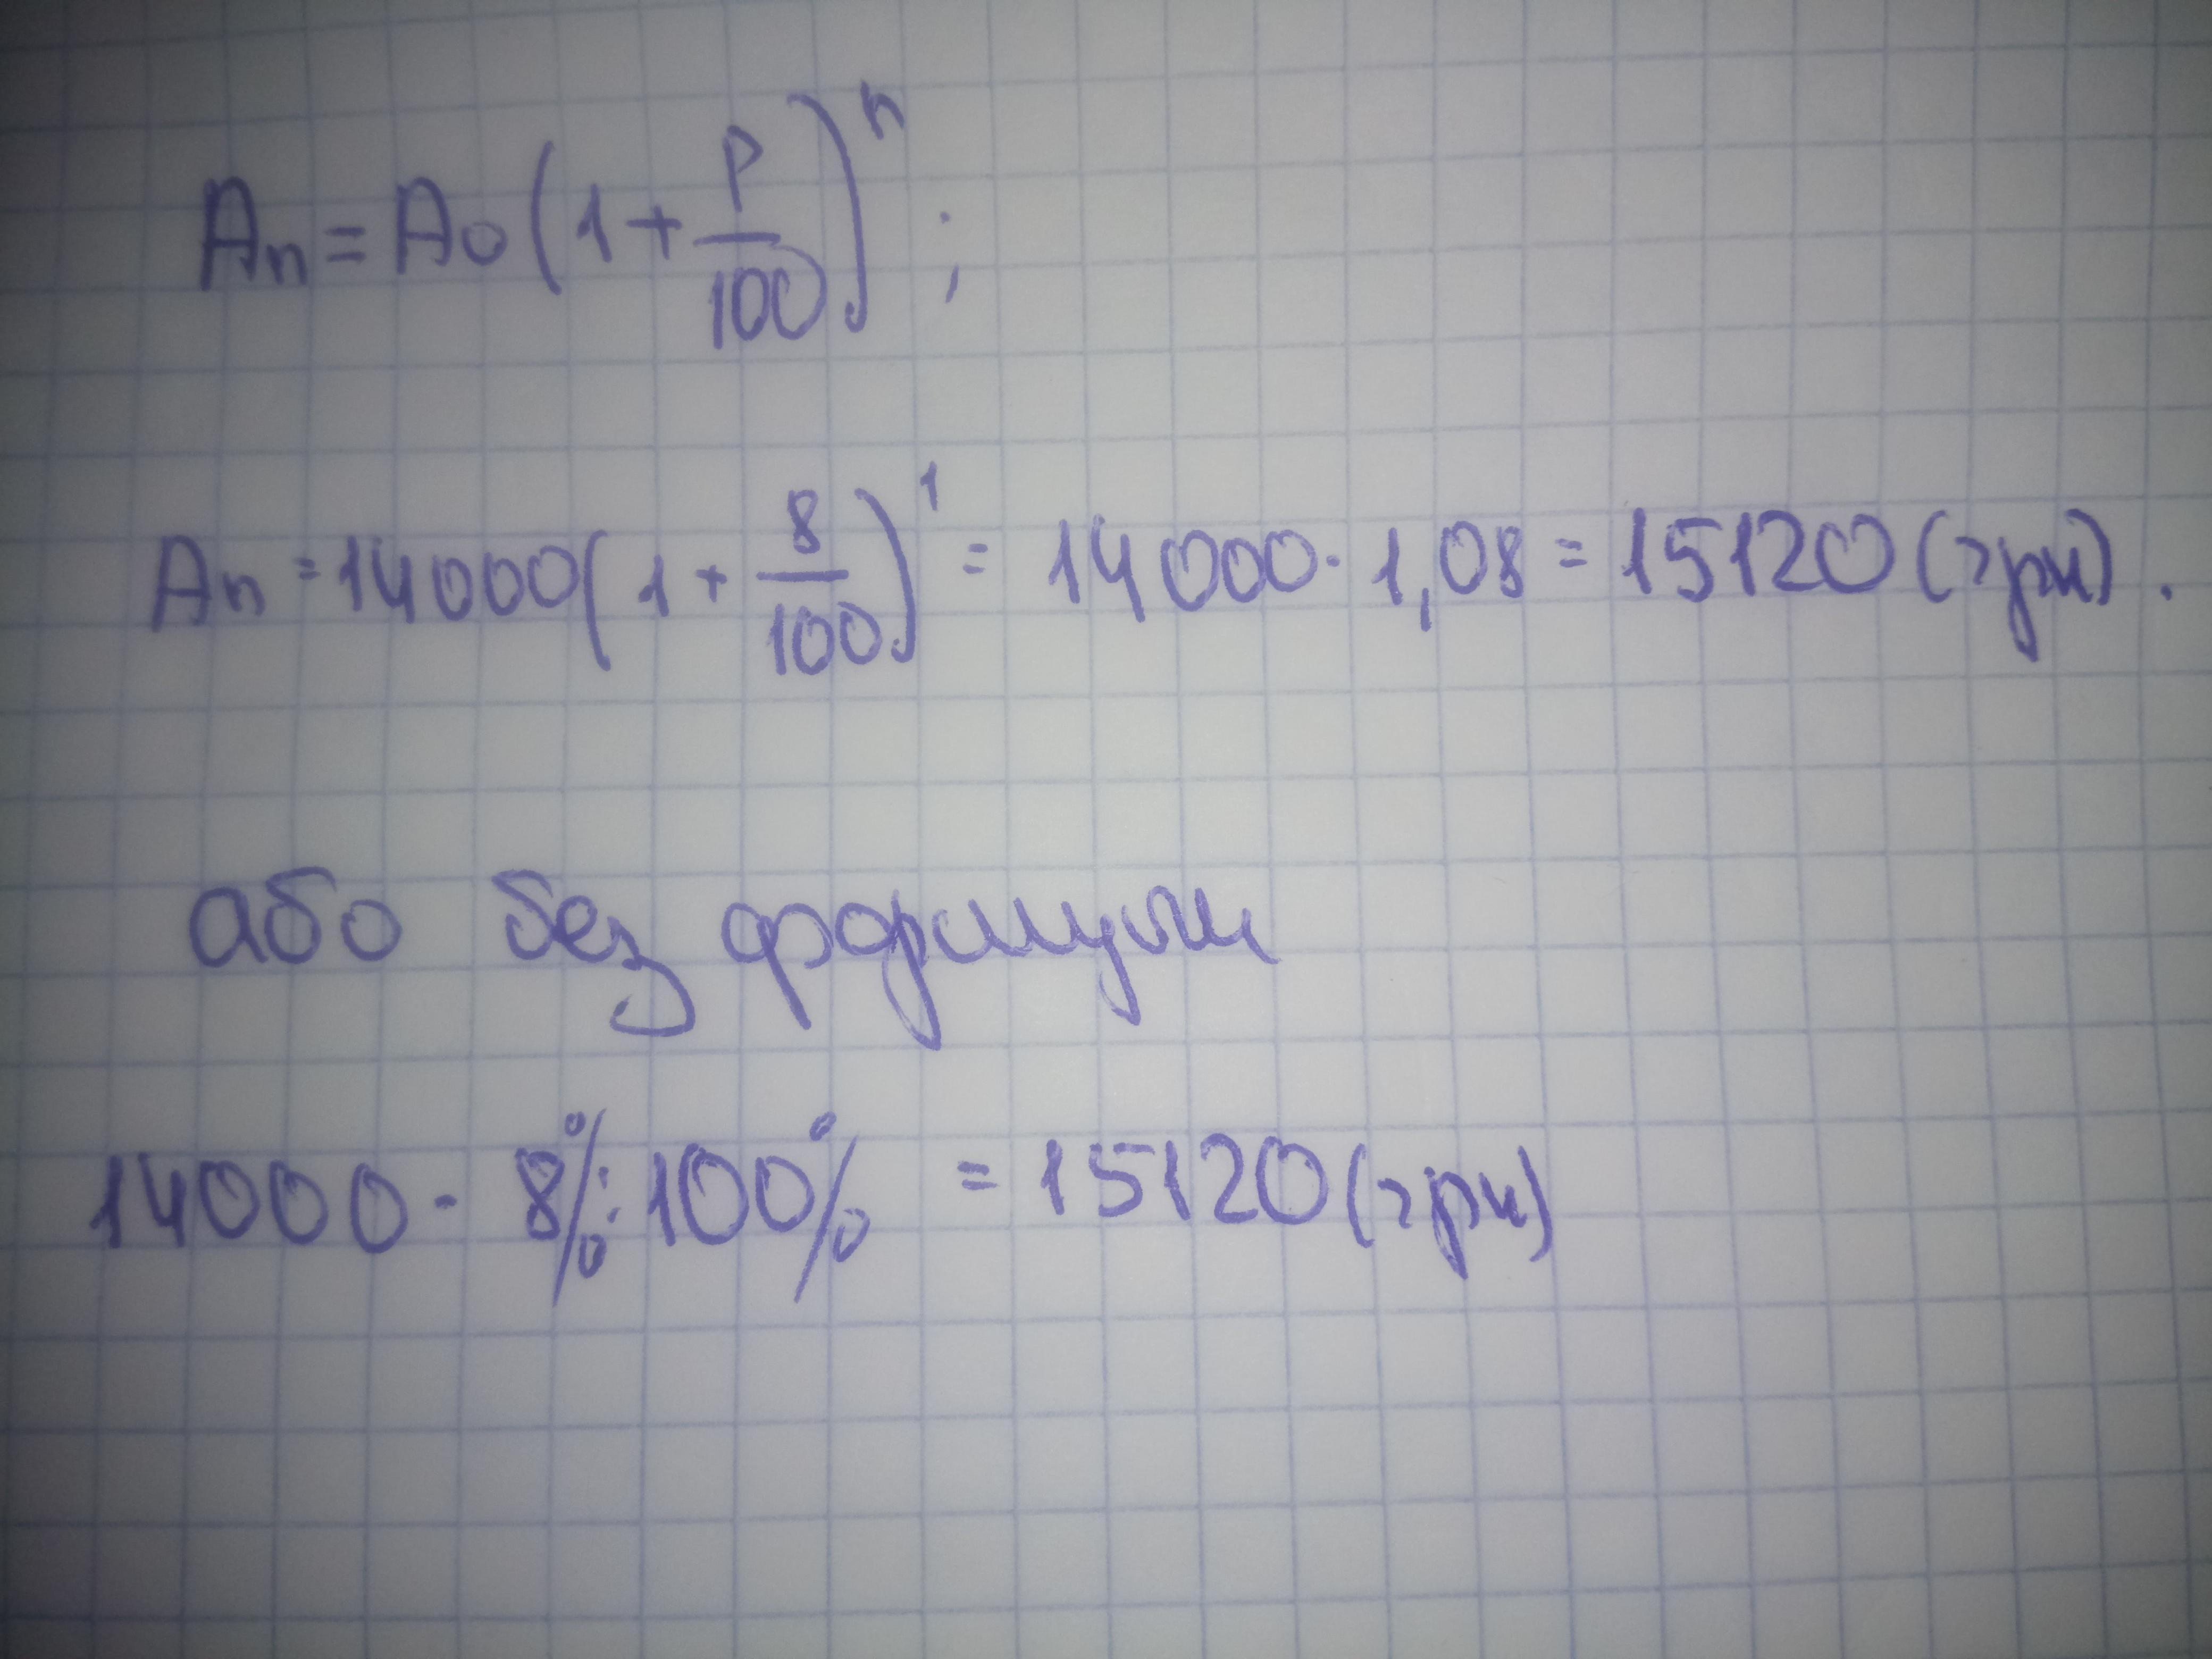 Aₙ = A₀(1 + P/100)ⁿ;
Aₙ = 14000(1 + 8/100)¹ = 14000 · 1,08 = 15120 (грн).
або без формули
14000 · 8% : 100% = 15120 (грн)